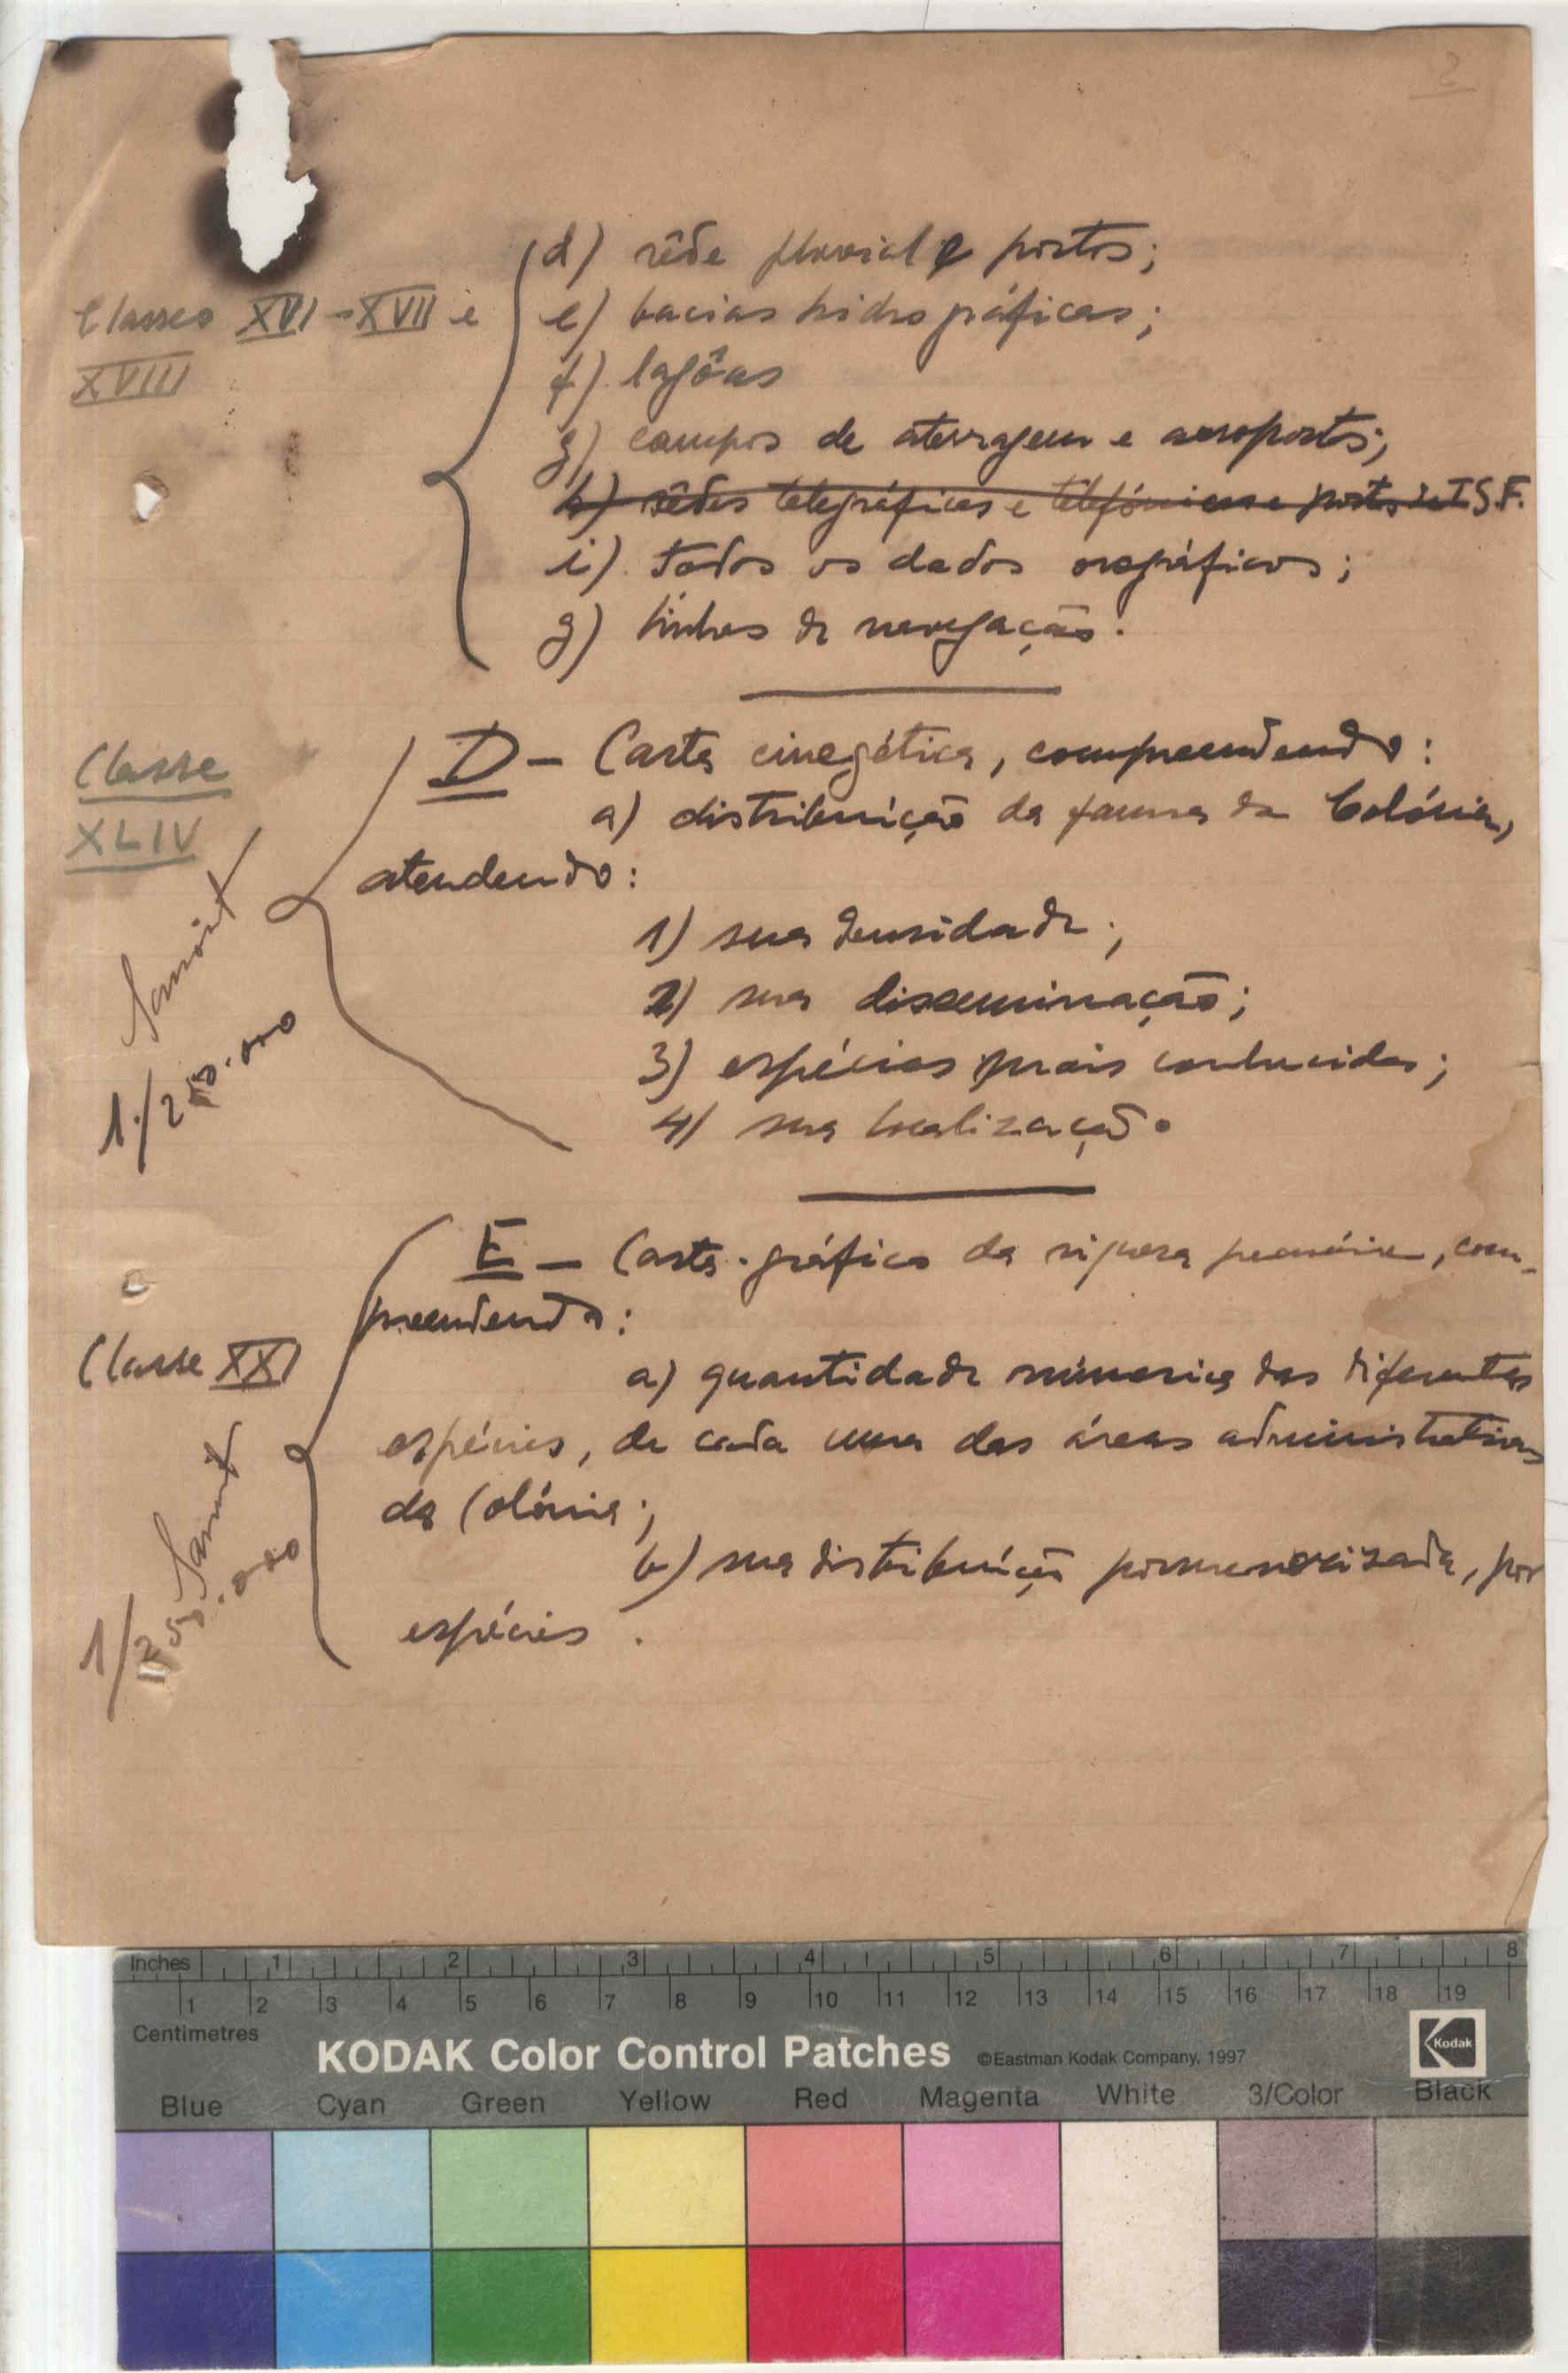 2
d) rêde fluvial e portos;
Classes XVI - XVII e
e) bacias hidrográficas;
XVIII
f) lagôas
g) campos de aterragem e aeroportos;
h) rêdes telegráficas e telefónicas e postos de T.S.F.
i) todos os dados orográficos;
g) linhas de navegação.
Classe
XLIV
D - Carta cinegética, compreendendo:
a) distribuição da fauna da Colónia,
atendendo:
1) sua densidade;
2) sua disseminação;
3) espécies mais conhecidas;
4) sua localização.
1/250.000
E - Carta-gráfico da riqueza pecuária, com-
preendendo:
Classe XXI
a) quantidade númerica das diferentes
espécies, de cada uma das áreas administrativas
da Colónia;
b) sua distribuição pormenorizada, por
espécies.
1/250.000
Inches 1 2 3 4 5 6 7 8
1 2 3 4 5 6 7 8 9 10 11 12 13 14 15 16 17 18 19
Centimetres
KODAK Color Control Patches ©Eastman Kodak Company, 1997 Kodak
Blue Cyan Green Yellow Red Magenta White 3/Color Black